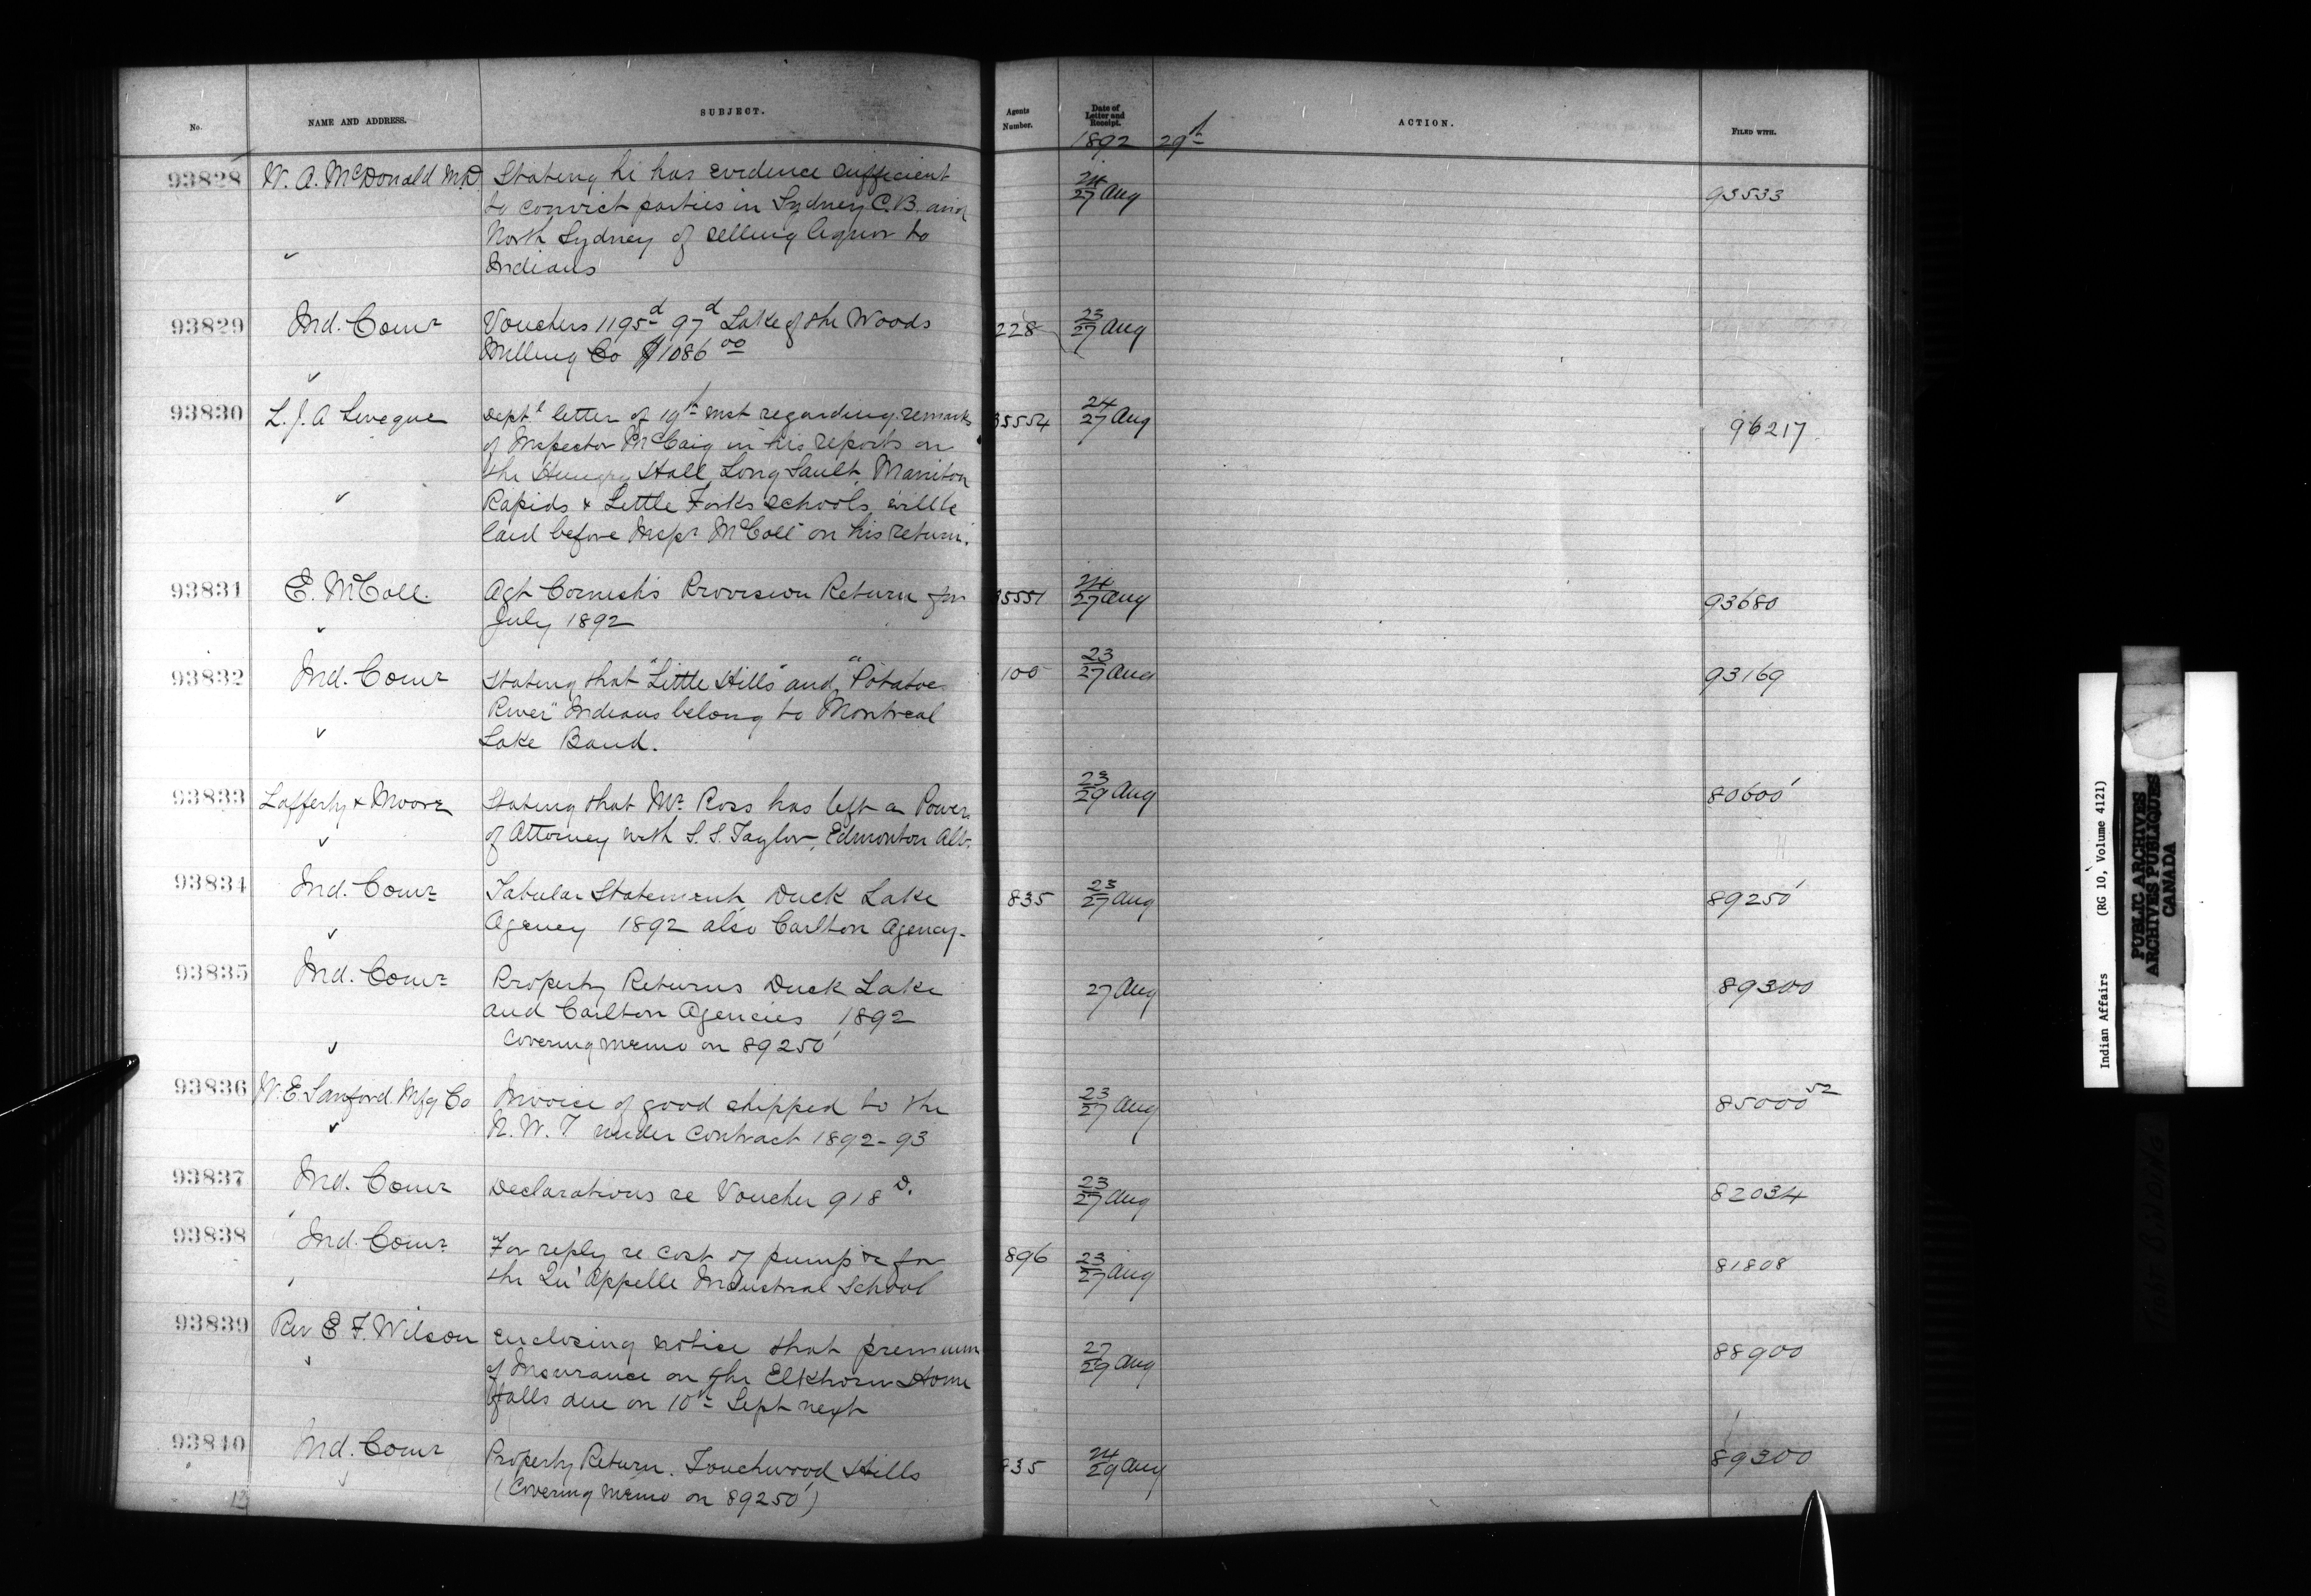 No. NAME AND ADDRESS. SUBJECT. Agents Number. Date of Letter and Receipt. ACTION. FILED WITH.
1892 29th
93828 W. A. McDonald M.D. Stating he has evidence sufficient 24/27 Aug 93533
to convict parties in Sydney C.B. and
North Sydney of selling liquor to
Indians
93829 Ind. Comr Vouchers 1195d 97d Lake of the Woods 228 23/27 Aug
Milling Co $1086 00
93830 L. J. A Leveque Deptl letter of 19th inst regarding remarks 35554 24/27 Aug 96217
of Inspector McCaig in his reports on
the Hungry Hall, Long Sault, Manitou
Rapids & Little Forks schools, will be
laid before Inspr McColl on his return.
93831 E. McColl. Agt Cornish's Provision Return for 35551 24/27 Aug 93680
July 1892
93832 Ind. Comr Stating that "Little Hills" and "Potatoe 100 23/27 Aug 93169
River" Indians belong to Montreal
Lake Band.
93833 Lafferty & Moore Stating that Mr. Ross has left a Power 23/29 Aug 80600
of Attorney with S. S. Taylor, Edmonton Alb.
93834 Ind. Comr Tabular Statement, Duck Lake 835 23/27 Aug 89250
Agency 1892 also Carlton Agency.
93835 Ind. Comr Property Returns Duck Lake 27 Aug 89300
and Carlton Agencies 1892
Covering memo on 89250
93836 W. E. Sanford Mfg Co Invoice of good shipped to the 23/27 Aug 85000 52
N. W. T under contract 1892-93
93837 Ind. Comr Declarations re Voucher 918 D. 23/27 Aug 82034
93838 Ind. Comr For reply re cost of pump &c for 896 23/27 Aug 81808
the Qu'Appelle Industrial School
93839 Rev E F. Wilson Enclosing notice that premium 27/29 Aug 88900
of Insurance on the Elkhorn Home
falls due on 10th Sept next
93840 Ind. Comr Property Return. Touchwood Hills 835 24/29 Aug 89300
(Covering memo on 89250)
13
Indian Affairs (RG 10, Volume 4121)
PUBLIC ARCHIVES
ARCHIVES PUBLIQUES
CANADA